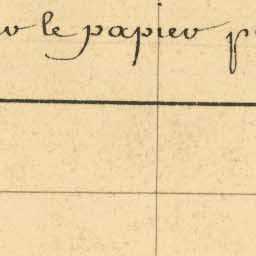 le papier